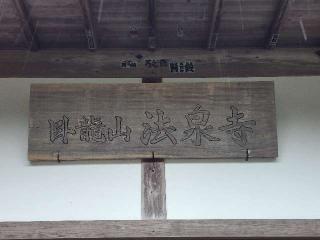 臥龍山 法泉寺